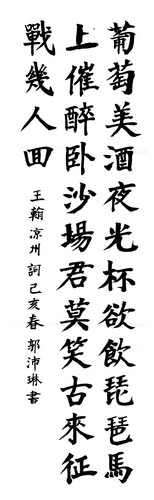 葡萄美酒夜光杯欲飲琵琶馬
上催醉卧沙場君莫笑古來征
戰幾人回
王翰凉州詞己亥春郭沛琳書